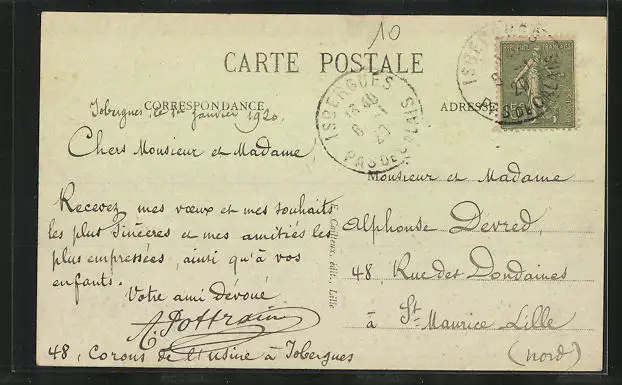 10
CARTE POSTALE
CORRESPONDANCE
ADRESSE
REPUBLIQUE FRANÇAISE
ISBERGUES
18 40
6 - 1
20
PAS DE CALAIS
Isbergues, le 1er janvier 1920.
Chers Monsieur et Madame
Recevez mes vœux et mes souhaits
les plus sincères et mes amitiés les
plus empressées, ainsi qu'à vos
enfants.
Votre ami dévoué
A. Pottrain
48, Corons de l'Usine à Isbergues
E. Cailteux, édit., Lille
Monsieur et Madame
Alphonse Devred,
48, Rue des Dondaines
à St Maurice Lille
(Nord)